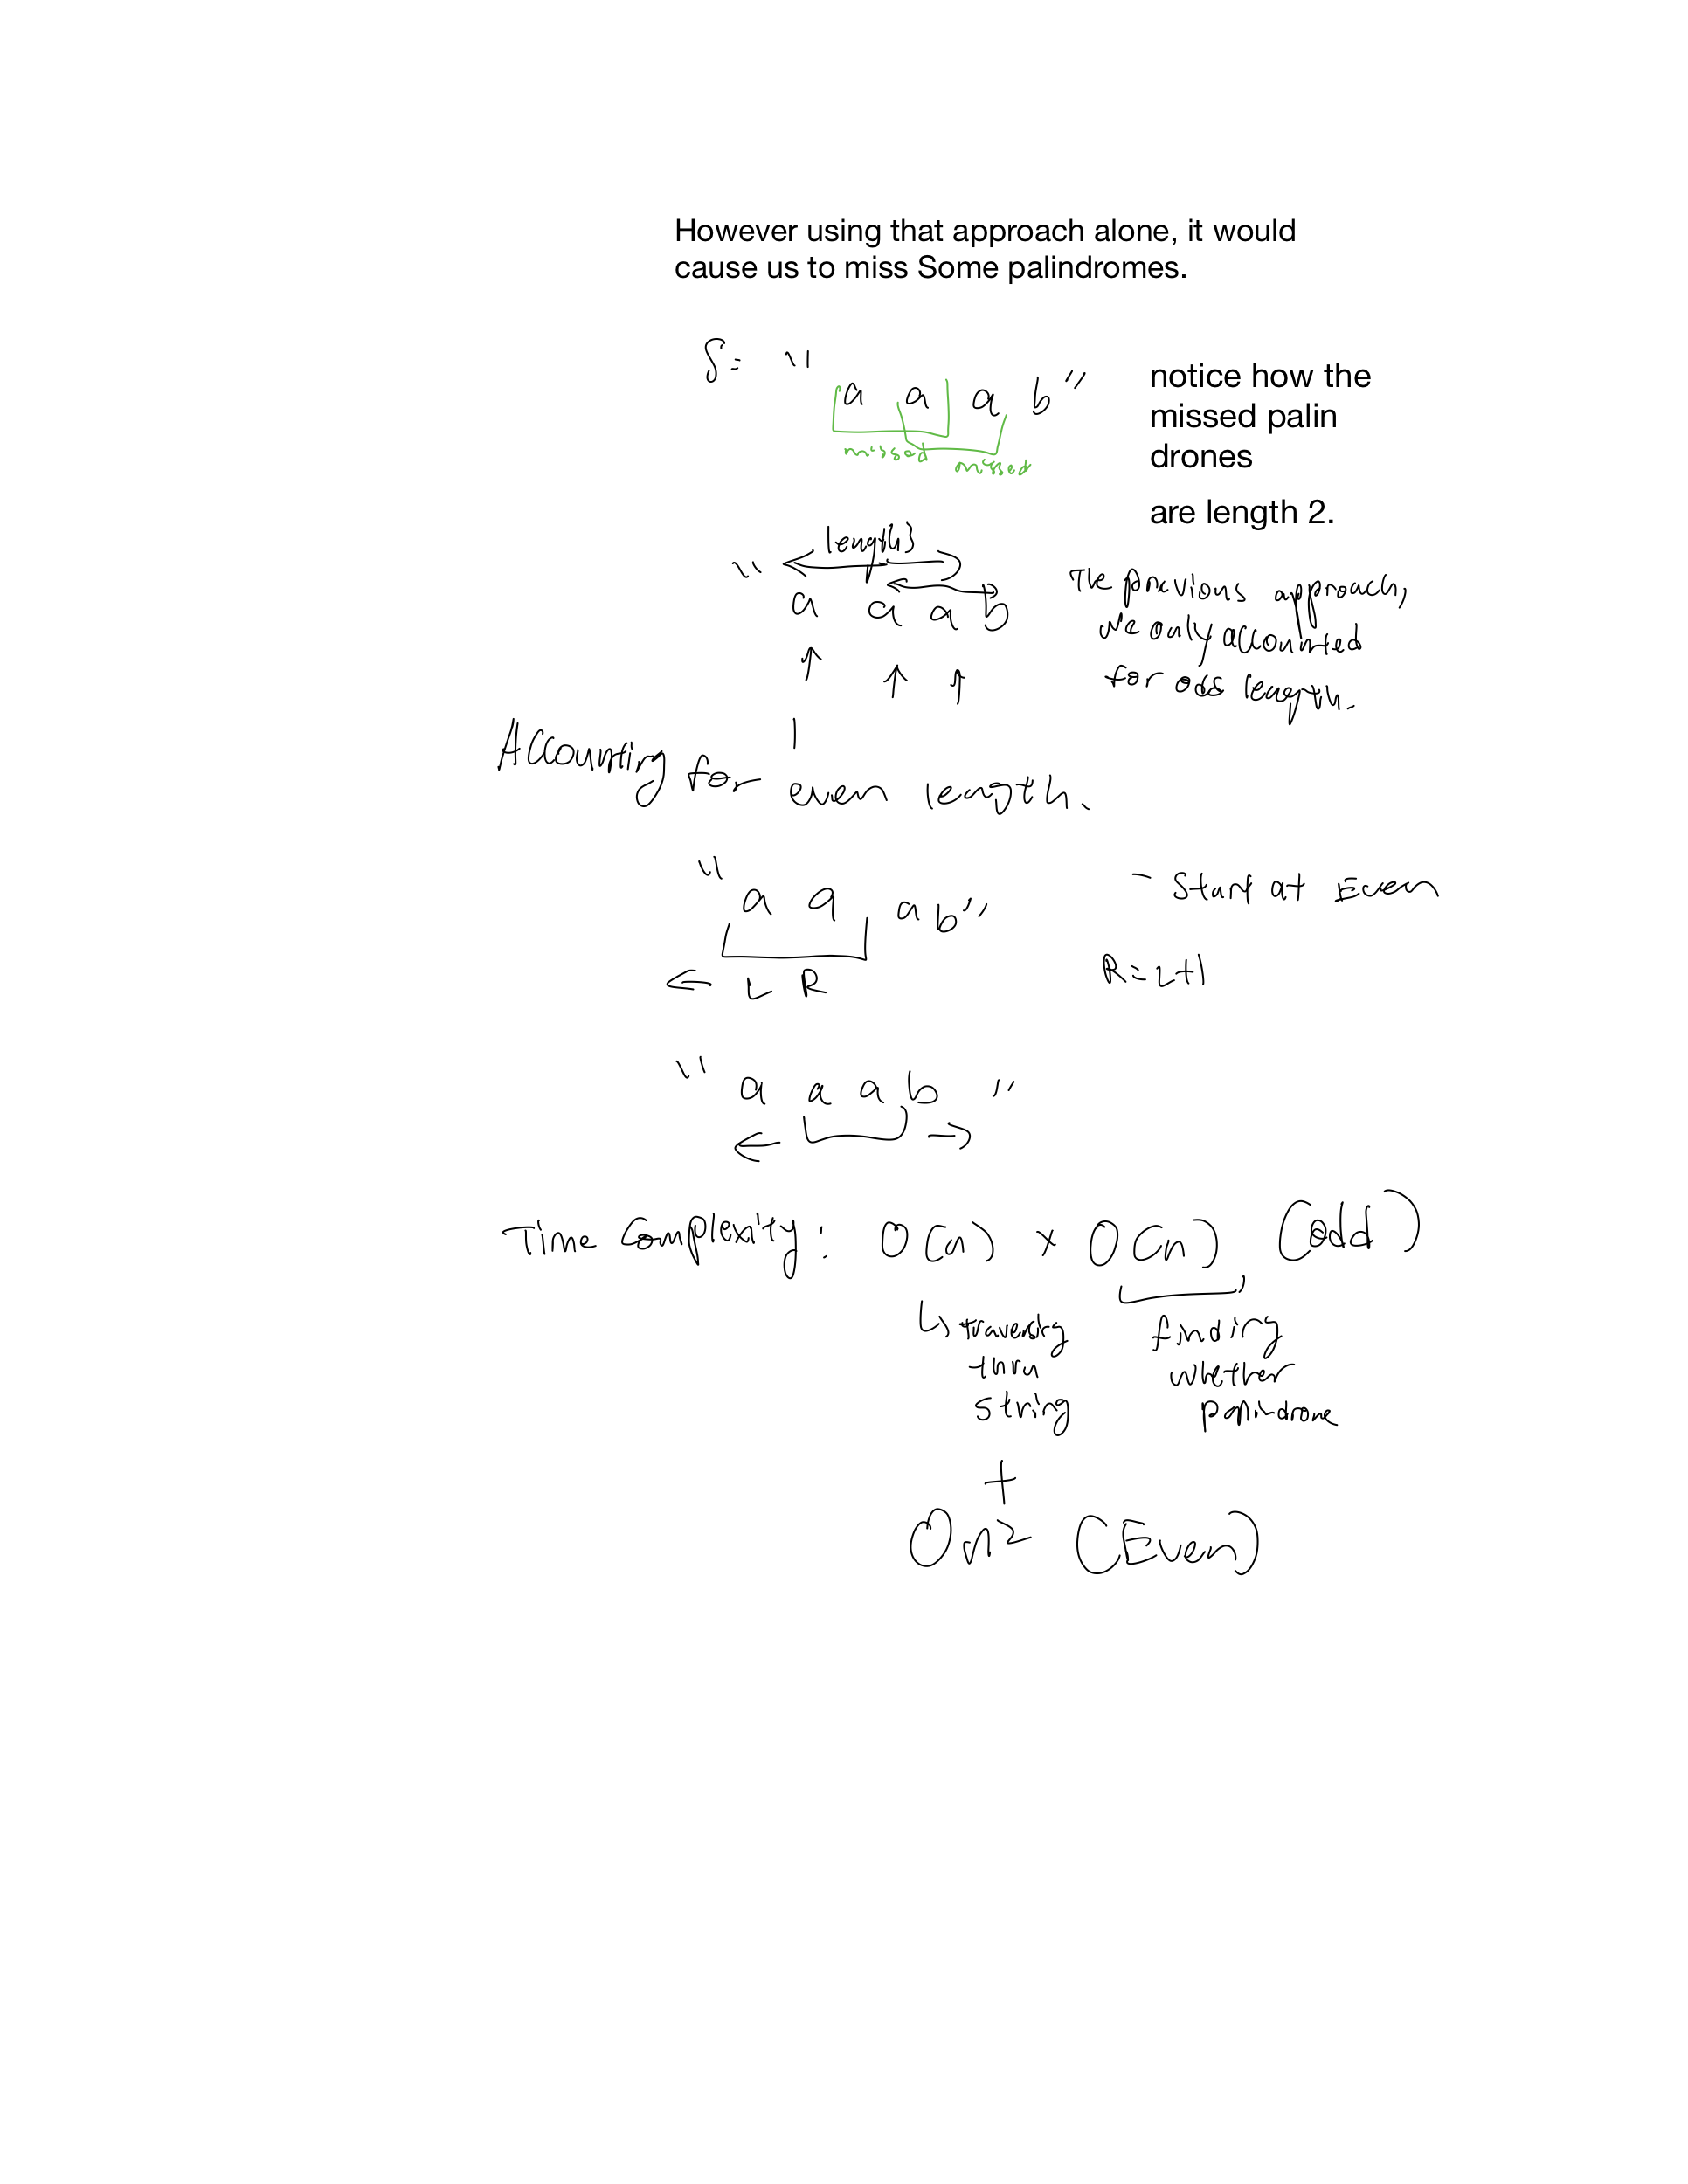 However using that approach alone, it would
cause us to miss Some palindromes.
S= "a a a b"
missed missed
notice how the
missed palin
drones
are length 2.
length 3
"a a a b
The previous approach,
we only accounted
for odd length.
Accounting for even length.
"a a a b"
- Start at Even
L R
R=L+1
"a a a b"
Time Complexity: O(n) x O(n) (odd)
traversing
thru
string
finding
whether
palindrone
+
On² (Even)